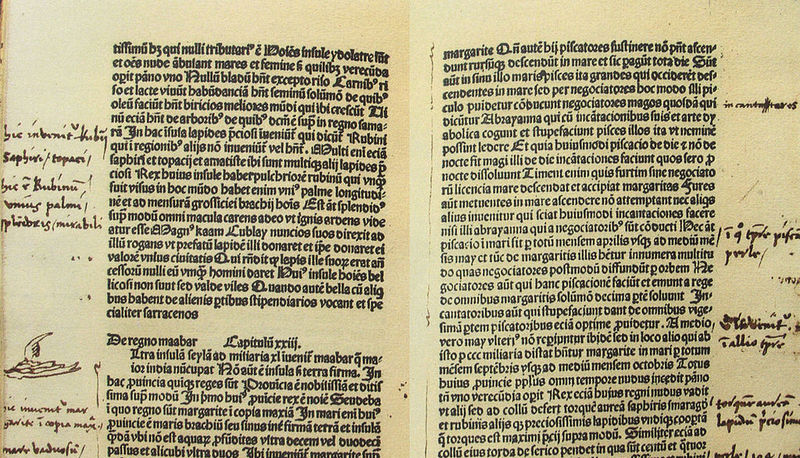 tissimū hꝫ qui nulli tributari⁹ ē Hoīes insule ydolatre sūt
et oēs nude ābulant mares et femine sꝫ quilibꝫ verecūda
opit pāno vno Nullū bladū hn̄t excepto riso Carnib⁹ ri
so et lacte viuūt habūdanciā hn̄t seminū solūmō de quib⁹
oleū faciūt hn̄t biricios meliores mūdi qui ibi crescūt Ui
nū eciā hn̄t de arborib⁹ de quib⁹ dcm̄ ē sup̄ in regno sama
rā In hac īsula lapides p̄ciosi īueniūt̄ qui dicūt̄ Rubini
qui ī regionib⁹ alijs nō īueniūt̄ vel hn̄t̄ Multi eni eciā
saphiri et topacij et amatiste ibi sunt multiqꝫ alij lapides p̄
ciosi Rex huius insule habet pulchriorē rubinū qui vnqꝫ
fuit visus in hoc mūdo habet enim vni⁹ palme longitudi
nē et ad mensurā grossiciei brachij hoīs Est āt splendid⁹
sup̄ modū omni macula carens adeo vt ignis ardens vide
atur esse Magn⁹ kaam Cublay nuncios suos direxit ad
illū rogans vt prefatū lapidē illi donaret et ip̄e donaret ei
valorē vnius ciuitatis Qui rn̄dit qꝫ lapis ille suorꝫ erat an̄
cessorū nulli eū vnqꝫ homini daret Hui⁹ insule hoīes bel
licosi non sunt sed valde viles Quando autē bella cū aliq
bus habent de alienis ptibus stipendiarios vocant et spe
cialiter sarracenos
De regno maabar Capitulū xxiij.
Ultra insulā seylā ad miliaria xl īuenit̄ maabar q̄ ma
ior india nūcupat̄ Nō āūt ē insula sꝫ terra firma. In
hac ꝓuincia quiqꝫ reges sūt Prouīcia ē nobilissiā et ditis
sima sup̄ modū In p̄mo hui⁹ ꝓuicie rex ē noīe Seudeba
ī quo regno sūt margarite ī copia maxiā In mari eni hui⁹
ꝓuincie ē maris brachiū seu sinus īnē firmā terrā et īsulā
q̄dā vbi nō est aquaꝝ ꝓfūditas vltra decem vel duodecī
passus et alicubi vltra duos Ibi inueniūt̄ margarite sup̄
margarite Q̄n āutē hij piscatores sustinere nō pn̄t ascen
dunt rursūqꝫ descendūt in mare et sic ꝑagūt tota die Sūt
āūt in sinu illo maris pisces ita grandes qui occiderēt des
cendentes in mare sed per negociatores hoc modo illi pi
culo ꝓuidetur cōducunt negociatores magos quosdā qui
dicūtur Abrayanna qui cū incātacionibus suis et arte dy
abolica cogunt et stupefaciunt pisces illos ita vt neminē
possint ledere Et quia huiusmodi piscacio de die ē nō de
nocte fit magi illi de die incātaciones faciunt quos sero ꝓ
nocte dissoluunt Timent enim quis furtim sine negociato
rū licencia mare descendat et accipiat margaritas Fures
āūt metuentes in mare ascendere nō attemptant nec aliqs
alius inuenitur qui sciat huiusmodi incantaciones facere
nisi illi abrayanna qui a negociatorib⁹ sūt cōducti Hec āt
piscacio ī mari fit ꝑ totū mensem aprilis vsqꝫ ad mediū mē
sis may et tūc de margaritis illis hētur innumera multitu
do quas negociatores postmodū diffundūt ꝑ orbem Ne
gociatores āūt qui hanc piscacionē faciūt et emunt a rege
de omnibus margaritis solūmō decimā ꝑtē soluunt In
cantatoribus āūt qui stupefaciunt dant de omnibus vige
simā ꝑtem piscatoribus eciā optime ꝓuidetur. A medio
vero may vlteri⁹ nō reꝑiuntur ibidē sed in loco alio qui ab
isto ꝑ ccc miliaria distat hn̄tur margarite in mari ꝑ totum
mēsem septēbris vsqꝫ ad mediū mensem octobris Totus
huius ꝓuincie pplus omn̄ tempore nudus incedit pāno
tn̄ vno verecūdia opit Rex eciā huius regni nudus vadit
vt alij sed ad collū defert torquē aureā saphiris smaragd⁹
et rubinis aliis qꝫ preciosissimis lapidibus vndiqꝫ coopta
q̄ torques est maximi p̄cij supra modū. Similiter eciā ad
collū eius torda de serico pendet in qua sūt centū et q̄tuor
hic inveniūt̄ Rubīj
Saphiri / topacij
hic ē Rubinū
vnius palmi
splēdidis / mirabili
hic inveniūt̄ mar
garite ī copia maxī
mare vadosū /
in cantatores
ī q̄ tp̄re piscāt̄
perle /
ī allio tp̄re
torquē aureā
lapidū p̄ciosi